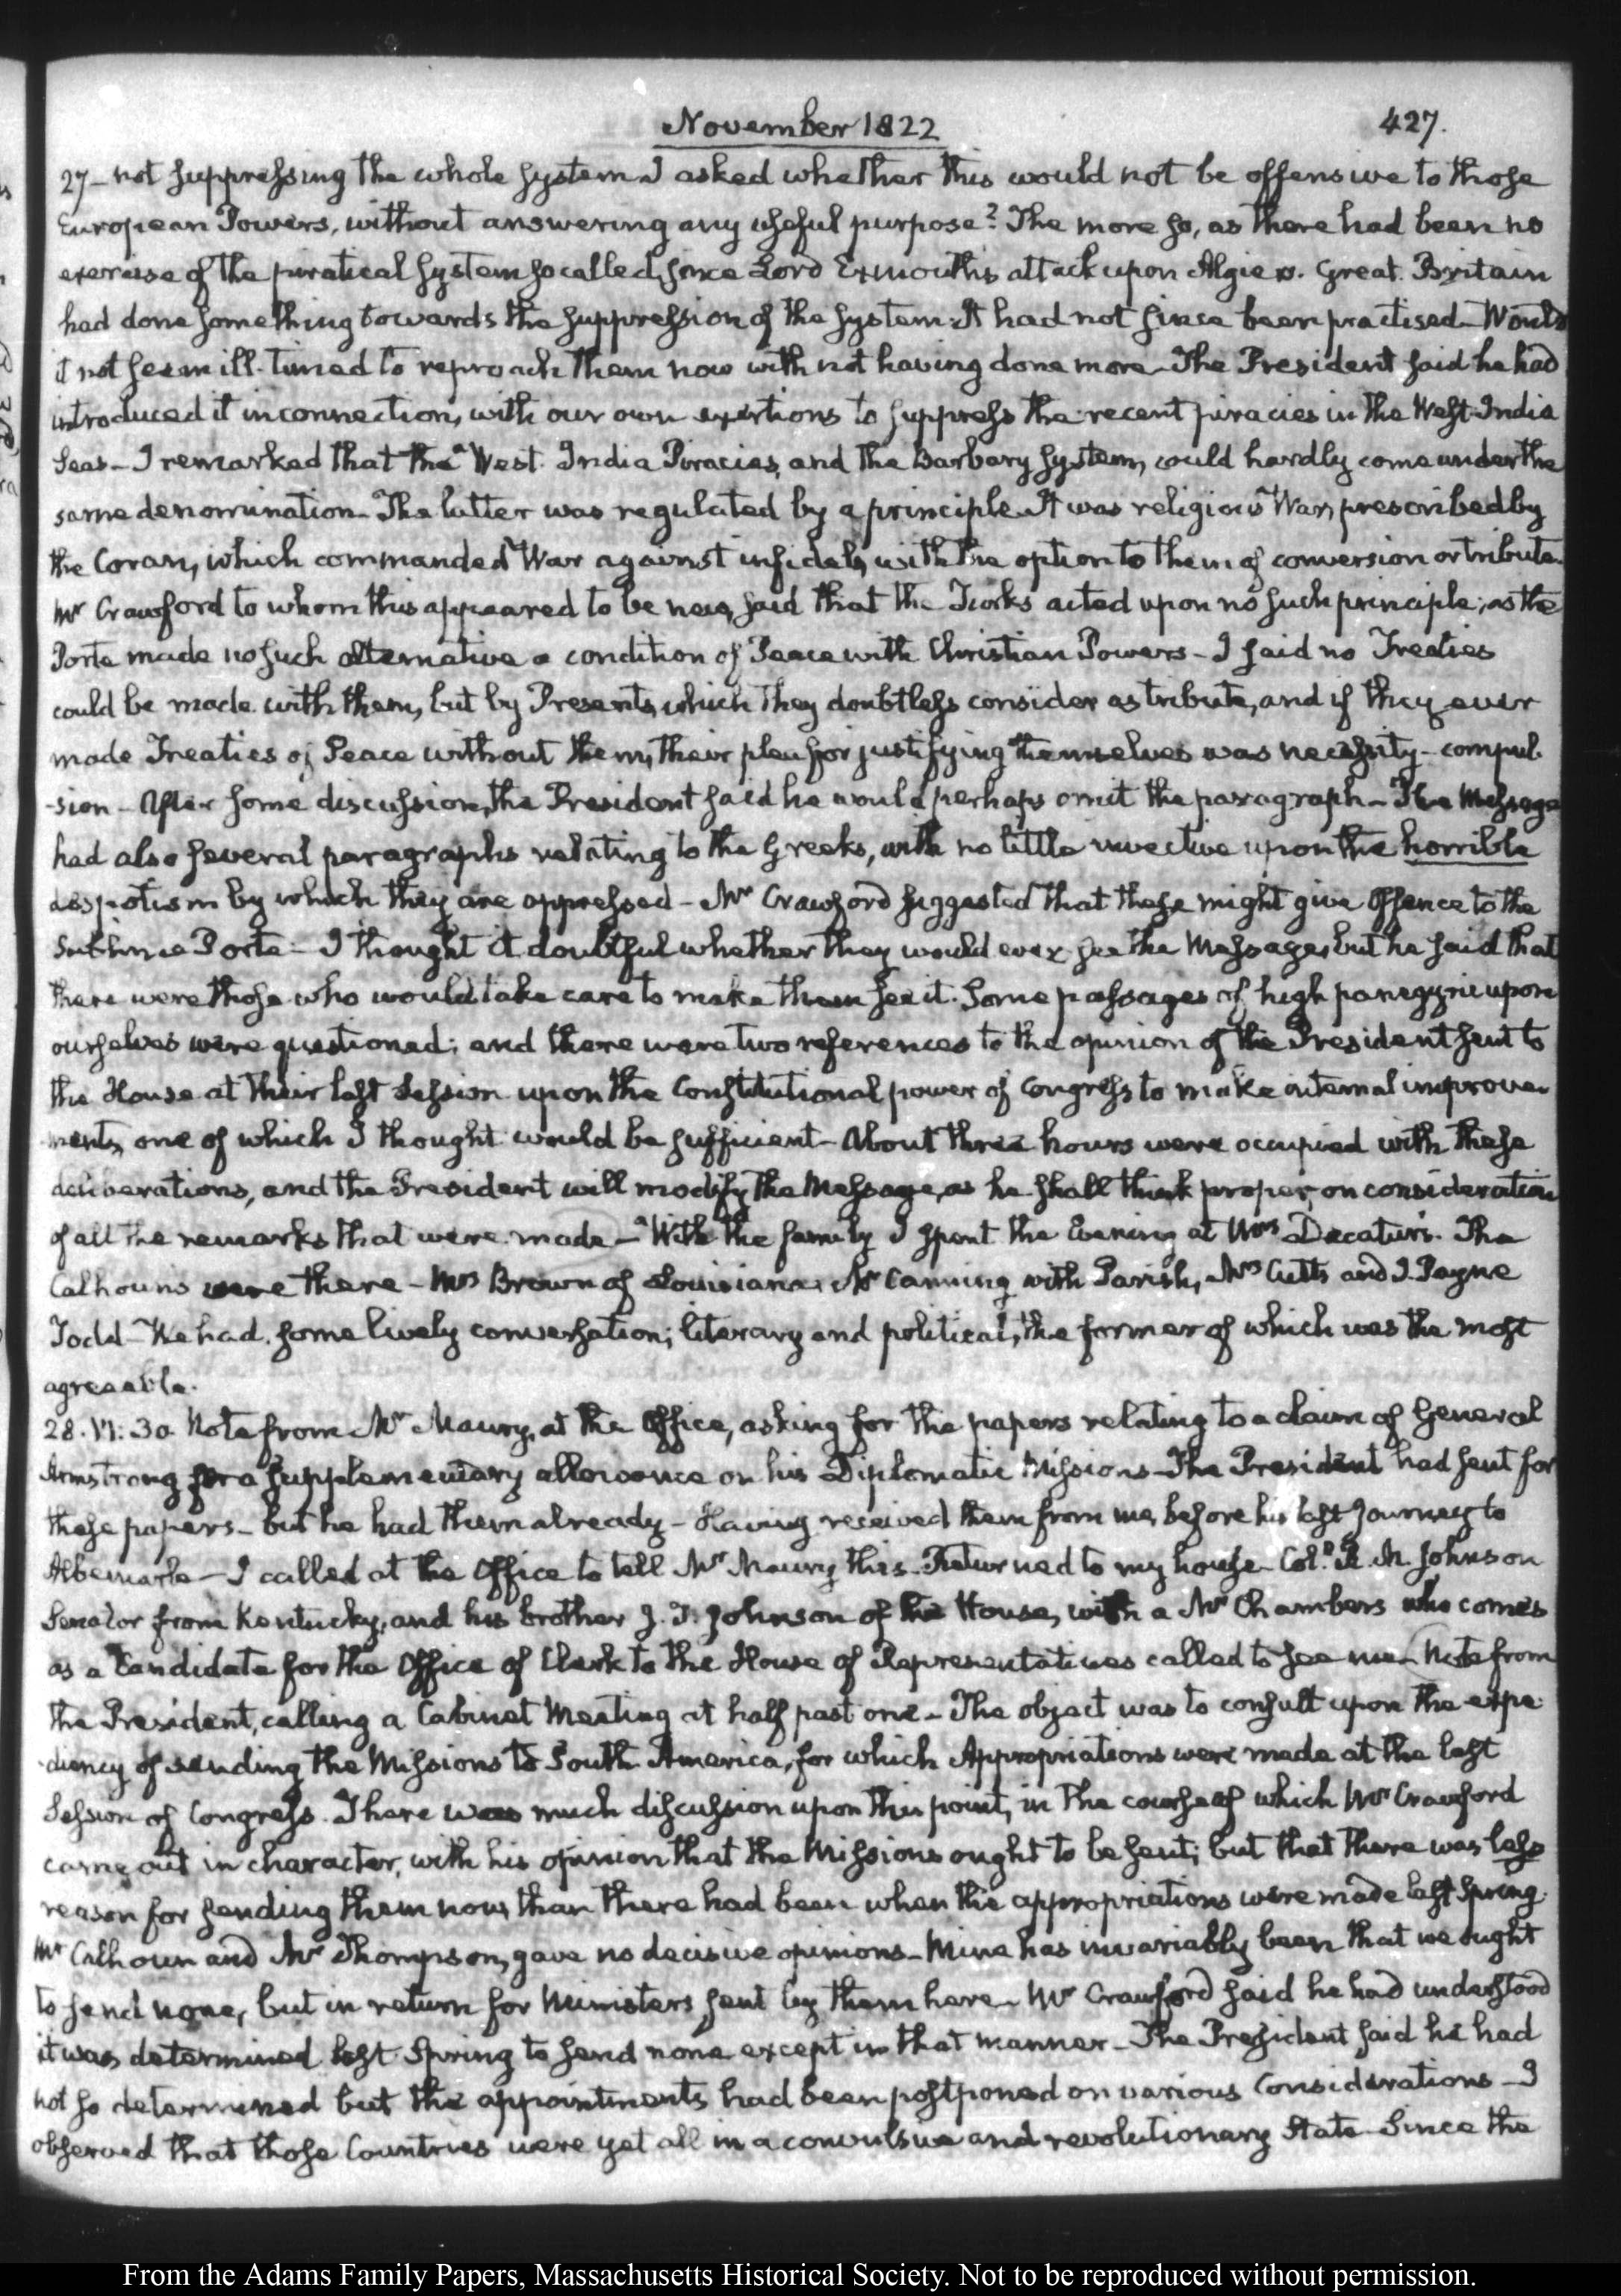 November 1822
427.
27 – not suppressing the whole system. I asked whether this would not be offensive to those
European Powers, without answering any useful purpose? The more so, as there had been no
exercise of the piratical system so called, since Lord Exmouth's attack upon Algiers. Great Britain
had done something towards the suppression of the system. It had not since been practised – Would
it not seem ill-timed to reproach them now with not having done more – The President said he had
introduced it in connection, with our own exertions to suppress the recent piracies in the West-India
Seas – I remarked that the West India Piracies, and the Barbary system, could hardly come under the
same denomination – The latter was regulated by a principle. It was religious War, prescribed by
the Coran, which commanded War against infidels, with the option to them of conversion or tribute.
Mr Crawford to whom this appeared to be new, said that the Turks acted upon no such principle; as the
Porte made no such alternative a condition of Peace with Christian Powers – I said no Treaties
could be made with them, but by Presents, which they doubtless consider as tribute, and if they ever
made Treaties of Peace without them, their plea for justifying themselves was necessity – compul-
-sion – After some discussion, the President said he would perhaps omit the paragraph – The Message
had also several paragraphs relating to the Greeks, with no little invective upon the horrible
despotism by which they are oppressed – Mr Crawford suggested that these might give Offence to the
Sublime Porte – I thought it doubtful whether they would ever see the Message, but he said that
there were those who would take care to make them see it. Some passages of high panegyric upon
ourselves were questioned; and there were two references to the opinion of the President sent to
the House at their last Session upon the Constitutional power of Congress to make internal improve-
-ments, one of which I thought would be sufficient – About three hours were occupied with these
deliberations, and the President will modify the Message, as he shall think proper, on consideration
of all the remarks that were made – With the family I spent the Evening at Mrs Decatur's. The
Calhouns were there – Mrs Brown of Louisiana. Mr Canning with Parish, Mrs Cutts and J. Payne
Todd – We had some lively conversation; literary and political, the former of which was the most
agreeable.
28. VI: 30. Note from Mr Maury, at the Office, asking for the papers relating to a claim of General
Armstrong for a supplementary allowance on his Diplomatic Missions – The President had sent for
these papers – but he had them already – Having received them from me, before his last journey to
Albemarle – I called at the Office to tell Mr Maury this. Returned to my house – Col. R. M. Johnson
Senator from Kentucky, and his brother J. T. Johnson of the House, with a Mr Chambers who comes
as a Candidate for the Office of Clerk to the House of Representatives called to see me – Note from
the President, calling a Cabinet Meeting at half past one – The object was to consult upon the expe-
-diency of sending the Missions to South America, for which Appropriations were made at the last
Session of Congress. There was much discussion upon this point, in the course of which Mr Crawford
came out in character, with his opinion that the Missions ought to be sent; but that there was less
reason for sending them now, than there had been when the appropriations were made last Spring.
Mr Calhoun and Mr Thompson, gave no decisive opinions – Mine has invariably been that we ought
to send none, but in return for Ministers sent by them here – Mr Crawford said he had understood
it was determined last Spring to send none except in that manner – The President said he had
not so determined but the appointments had been postponed on various Considerations – I
observed that those Countries were yet all in a convulsive and revolutionary State. Since the
From the Adams Family Papers, Massachusetts Historical Society. Not to be reproduced without permission.